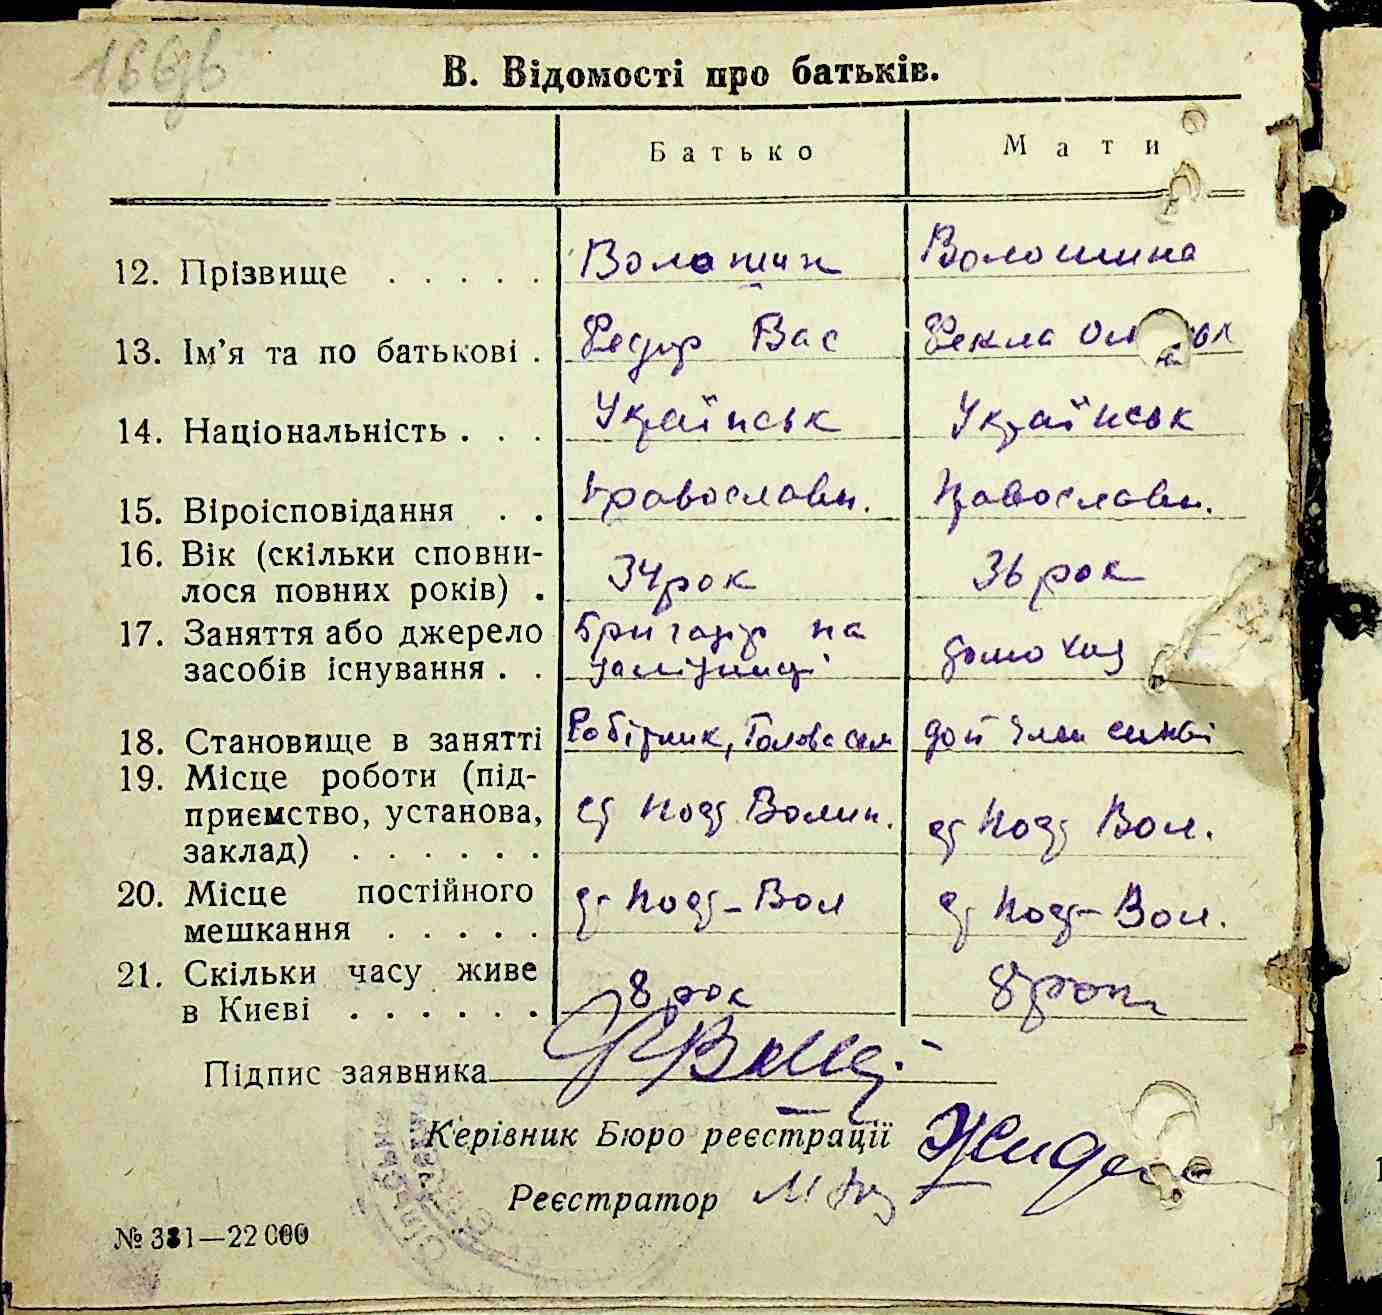 В. Відомості про батьків.
Батько Мати
12. Прізвище . . . . . Волошин Волошина
13. Ім'я та по батькові . Федір Вас Фекла
14. Національність . . . Українськ Українськ
15. Віроісповідання . . Православн. Православн.
16. Вік (скільки сповни-
лося повних років) . 34 рок 36 рок
17. Заняття або джерело Бригадір на
засобів існування . . залізниці домохаз
18. Становище в занятті Робітник, Голова сем член
19. Місце роботи (під-
приємство, установа, Волин. Вол.
заклад) . . . . . .
20. Місце постійного Вол Вол.
мешкання . . . . .
21. Скільки часу живе
в Києві . . . . . . 8 рок 8 рок
Підпис заявника
Керівник Бюро реєстрації
Реєстратор
№ 331—22 000